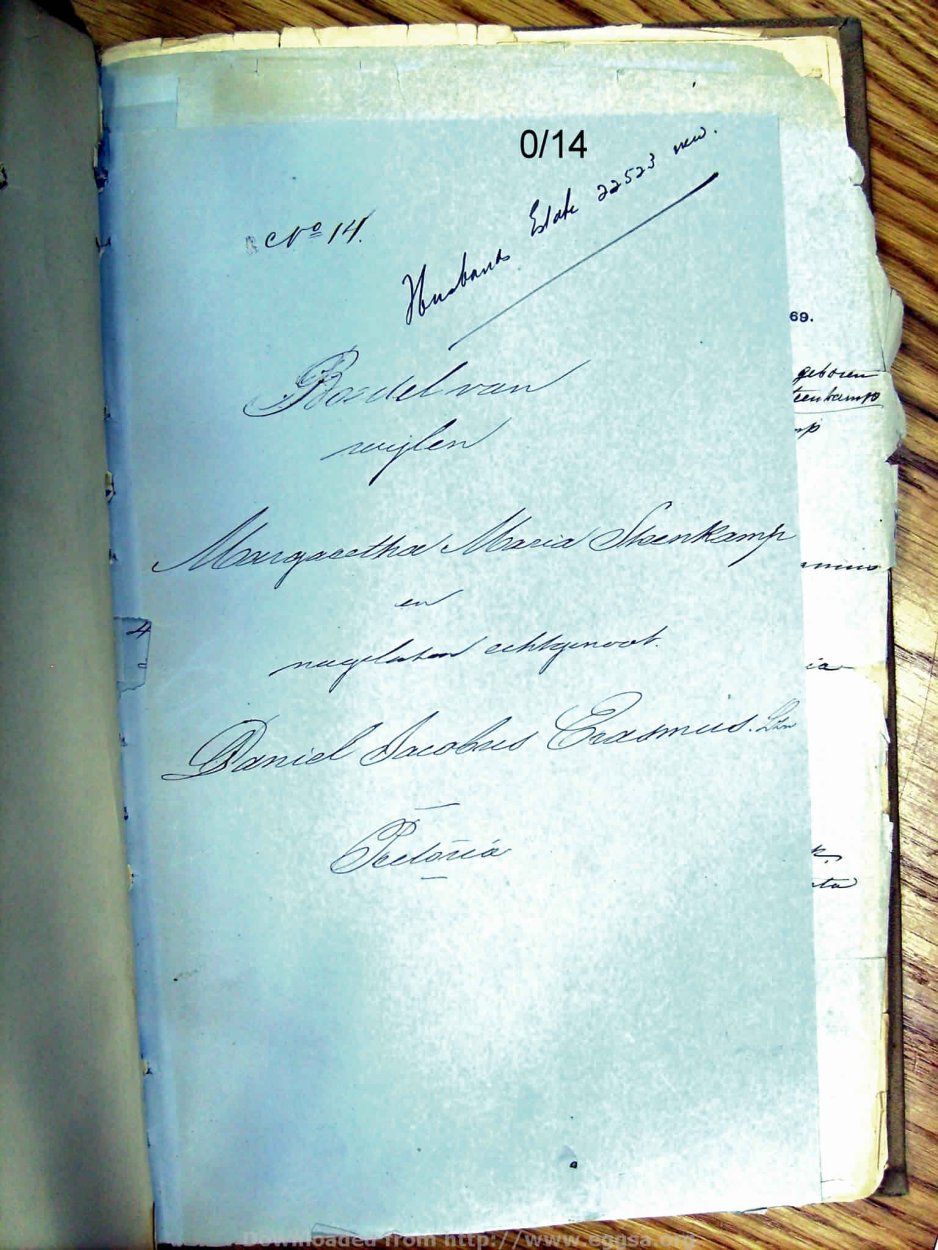 0/14
No 14.
Husbands Estate 22523 new.
Boedel van
wijlen
Margaretha Maria Steenkamp
en
nagelaten echtgenoot.
Daniel Jacobus Erasmus.
Pretoria
69.
geboren
teenkamp
mp
asmus
ia
ta
4
Downloaded from http://www.eggsa.org